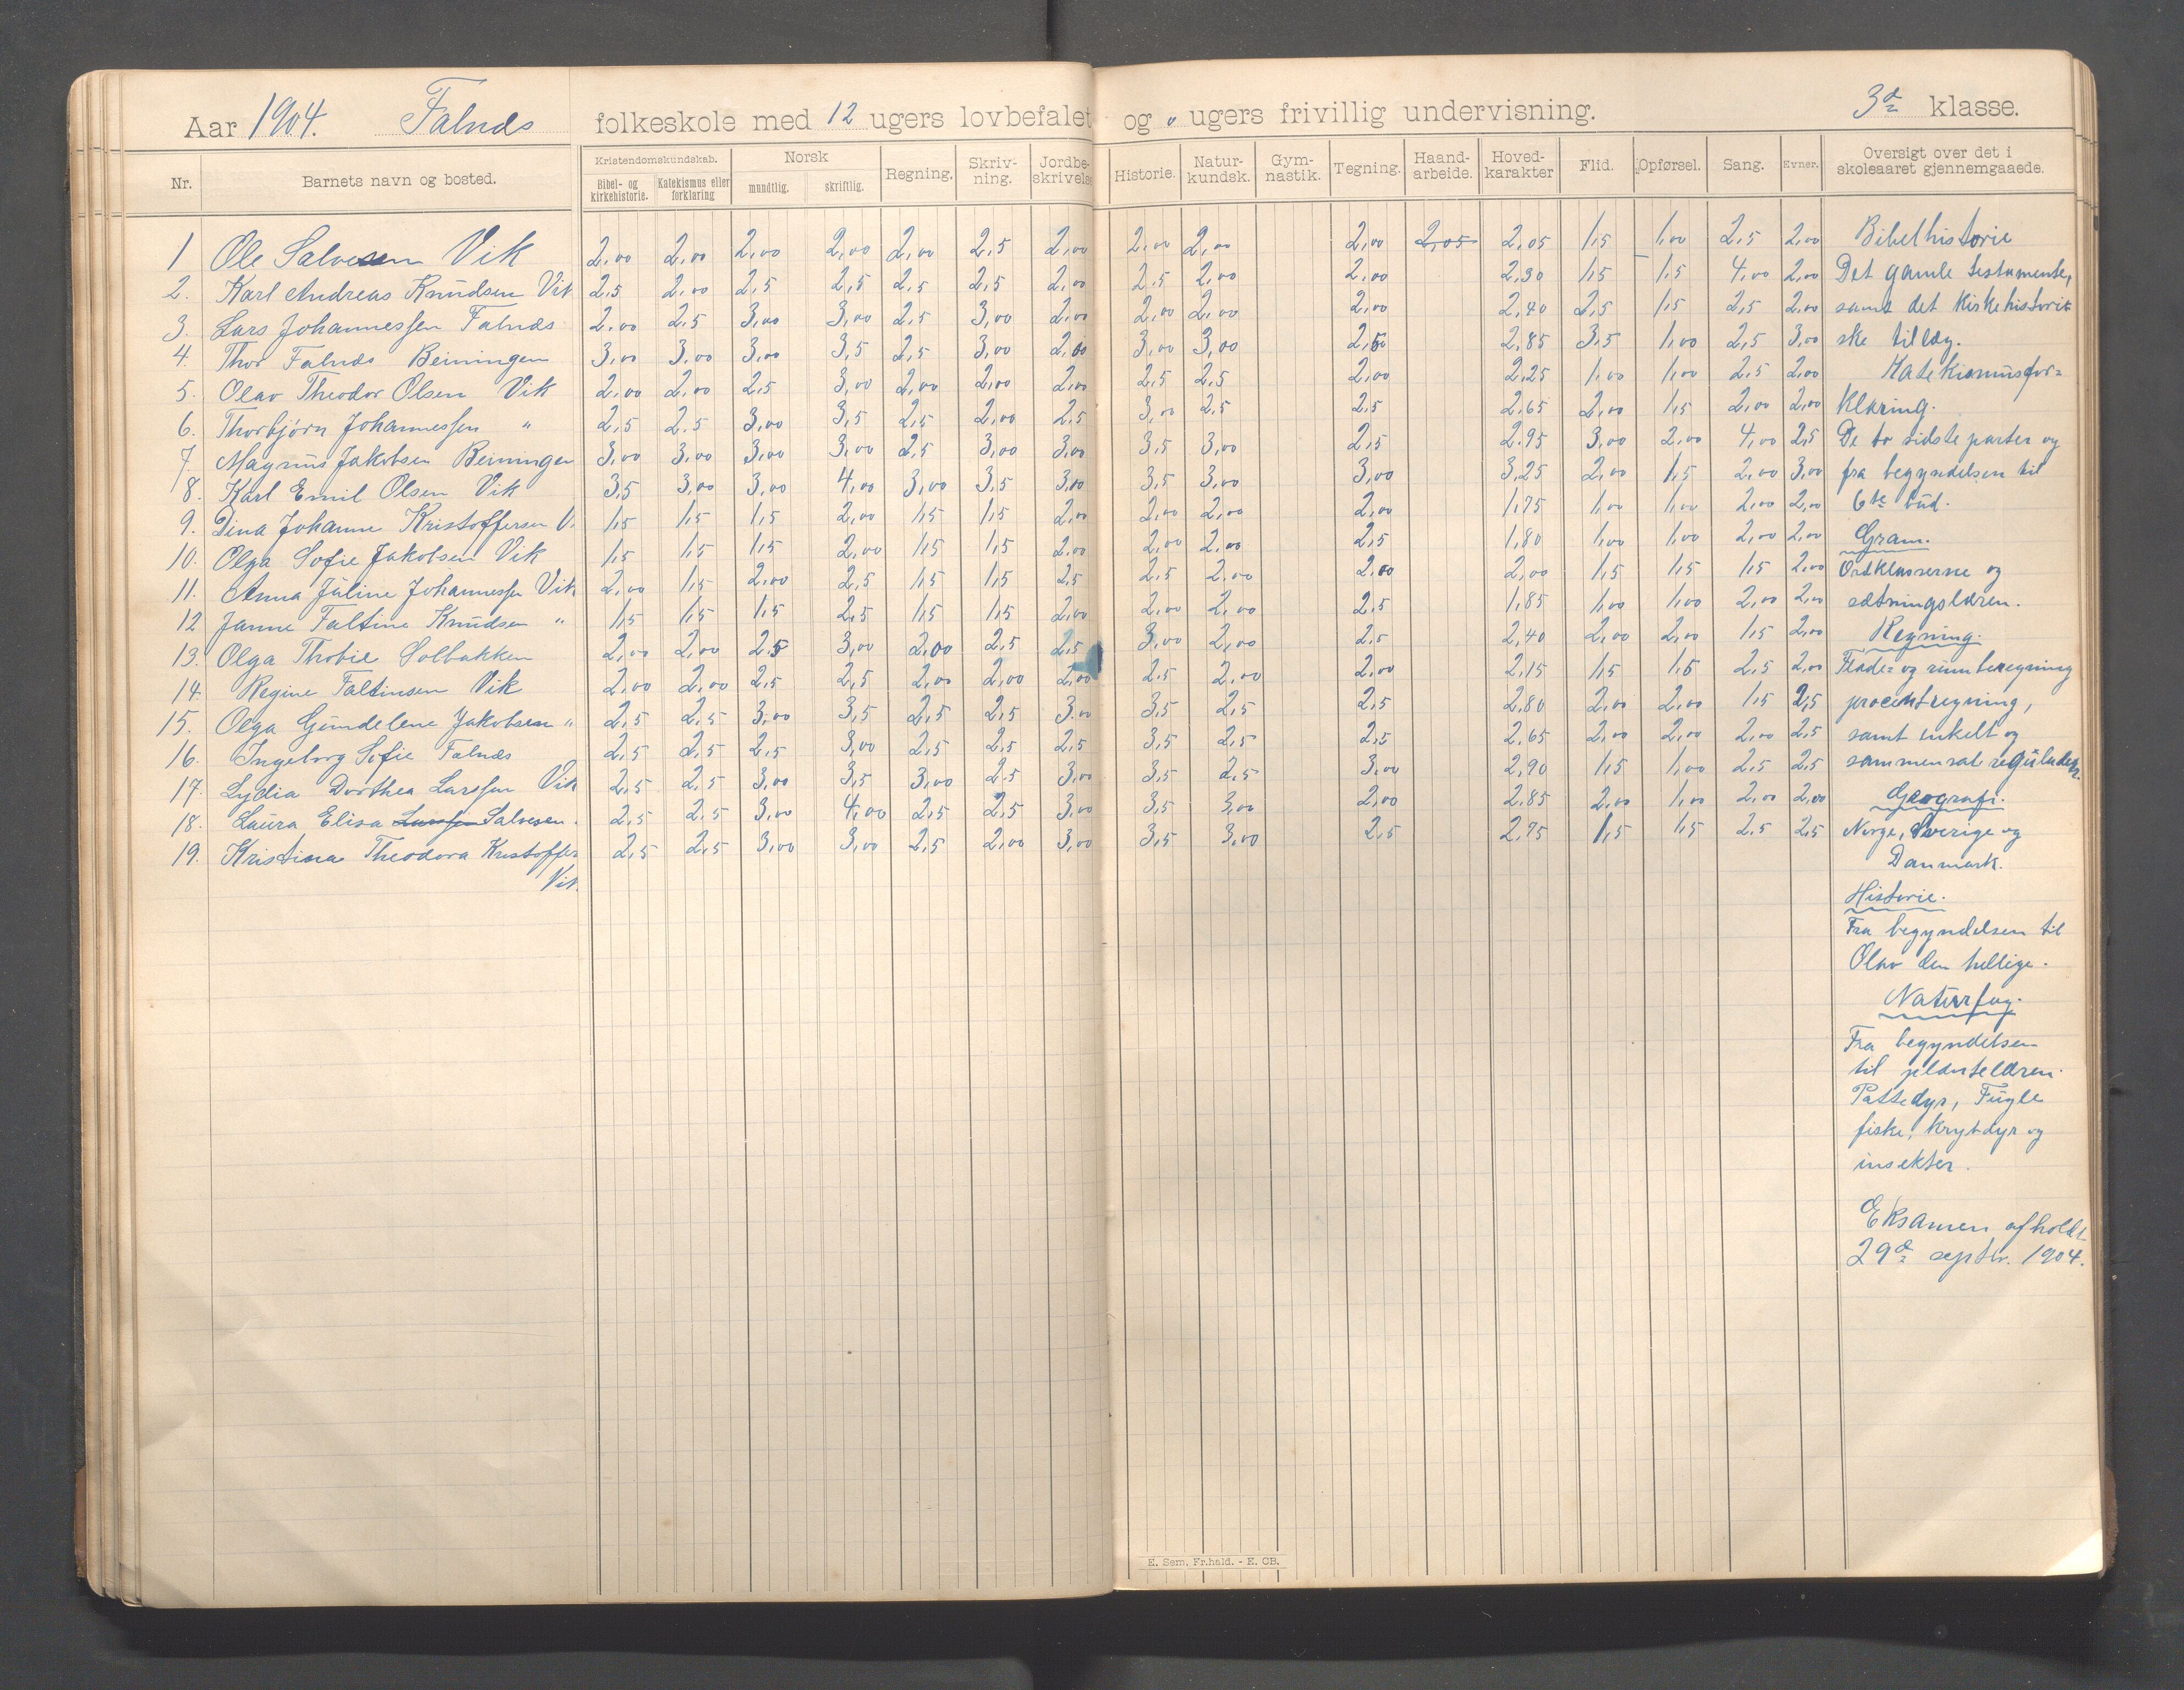 Aar 1904. Falnæs folkeskole med 12 ugers lovbefalet og " ugers frivillig undervisning. 3d= klasse.
Nr. Barnets navn og bosted. Kristendomskundskab. Bibel- og kirkehistorie. Katekismus eller forklaring Norsk mundtlig. skriftlig. Regning. Skriv-ning. Jordbe-skrivelse Historie. Natur-kundsk. Gym-nastik. Tegning. Haand-arbeide. Hoved-karakter Flid. Opførsel. Sang. Evner. Oversigt over det i skoleaaret gjennemgaaede.
1 Ole Salvesen Vik 2,00 2,00 2,00 2,00 2,00 2,5 2,00 2,00 2,00 2,00 2,05 2,05 1,5 1,00 2,5 2,00 Bibelhistorie
2. Karl Andreas Knudsen Vik 2,5 2,00 2,5 2,5 2,5 2,5 2,00 2,5 2,00 2,00 2,30 1,5 1,5 4,00 2,00 Det gamle testamente,
3. Lars Johannessen Falnæs 2,00 2,5 3,00 3,00 2,5 3,00 2,00 2,00 2,00 2,00 2,40 2,5 1,5 2,5 2,00 samt det kirkehistori-
4. Thor Falnæs Beiningen 3,00 3,00 3,00 3,5 2,5 3,00 2,00 3,00 3,00 2,5 2,85 3,5 1,00 2,5 3,00 ske tillæg.
5. Olav Theodor Olsen Vik 2,00 2,00 2,5 3,00 2,00 2,00 2,00 2,5 2,5 2,00 2,25 1,00 1,00 2,5 2,00 Katekismusfor=
6. Thorbjørn Johannessen " 2,5 2,5 3,00 3,5 2,5 2,00 2,5 3,00 2,5 2,5 2,65 2,00 1,5 2,00 2,00 klaring.
7. Magnus Jakobsen Beiningen 3,00 3,00 3,00 3,00 2,5 3,00 3,00 3,5 3,00 2,5 2,95 3,00 2,00 4,00 2,5 De to sidste parter og
8. Karl Emil Olsen Vik 3,5 3,00 3,00 4,00 3,00 3,5 3,00 3,5 3,00 3,00 3,25 2,00 1,5 2,00 3,00 fra begyndelsen til
9. Dina Johanne Kristoffersen V. 1,5 1,5 1,5 2,00 1,5 1,5 2,00 2,00 2,00 2,00 1,75 1,00 1,00 2,00 2,00 6te bud.
10. Olga Sofie Jakobsen Vik 1,5 1,5 1,5 2,00 1,5 1,5 2,00 2,00 2,00 2,5 1,80 1,00 1,00 2,00 2,00 Gram.
11. Anna Juline Johannessen Vik 2,00 1,5 2,00 2,5 1,5 1,5 2,5 2,5 2,00 2,00 2,00 1,5 1,5 1,5 2,00 Ordklasserne og
12 Janne Faltine Knudsen " 1,5 1,5 1,5 2,5 1,5 1,5 2,00 2,00 2,00 2,5 1,85 1,00 1,00 2,00 2,00 sætningslæren.
13. Olga Thobie Solbakken 2,00 2,00 2,5 3,00 2,00 2,5 2,5 3,00 2,00 2,5 2,40 2,00 2,00 1,5 2,00 Regning.
14. Regine Faltinsen Vik 2,00 2,00 2,5 2,5 2,00 2,00 2,00 2,5 2,00 2,00 2,15 1,5 1,5 2,5 2,00 Flade= og rumberegning
15. Olga Gundelene Jakobsen " 2,5 2,5 3,00 3,5 2,5 2,5 3,00 3,5 2,5 2,5 2,80 2,00 2,00 1,5 2,5 procentregning,
16. Ingeborg Sofie Falnæs 2,5 2,5 2,5 3,00 2,5 2,5 2,5 3,5 2,5 2,5 2,65 2,00 2,00 2,00 2,5 samt enkelt og
17. Lydia Dorthea Larssen Vik 2,5 2,5 3,00 3,5 3,00 2,5 3,00 3,5 2,5 3,00 2,90 1,5 1,00 2,5 2,5 sammensat
18. Laura Elisa Larssen Salvesen. 2,5 2,5 3,00 4,00 2,5 2,5 3,00 3,5 3,00 2,00 2,85 2,00 1,00 2,00 2,00 Geografi.
19. Kristina Theodora Kristoffer 2,5 2,5 3,00 3,00 2,5 2,00 3,00 3,5 3,00 2,5 2,75 1,5 1,5 2,5 2,5 Norge, Sverige og
Vik. Danmark.
Historie.
Fra begyndelsen til
Olav den hellige.
Naturfag.
Fra begyndelsen
til plantelæren.
Pattedyr, Fugle
fiske, krybdyr og
insekter.
Eksamen afholdt
29d= septbr. 1904.
E. Sem, Fr.hald. - E. CB.